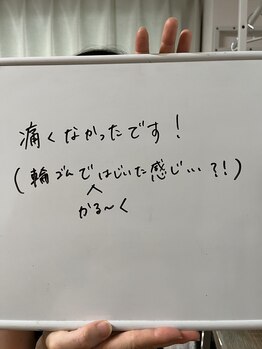 痛くなかったです!
(輪ゴムではじいた感じ…?!)
かる〜く